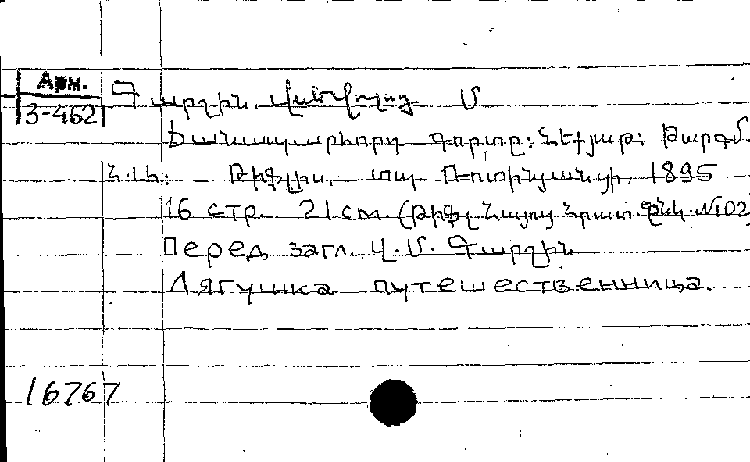 Арм.
3-462
Գարշին Վսեվոլոդ Մ
Ճանապարհորդ գորտը: Հեքյաթ: Թարգմ.
Թիֆլիս, տպ Ռոտինյանցի, 1895
16 стр. 21 см. (Թիֆլ Հայոց Հրատ. Ընկ №102
Перед загл. Վ. Մ. Գարշին
Лягушка путешественница.
16767